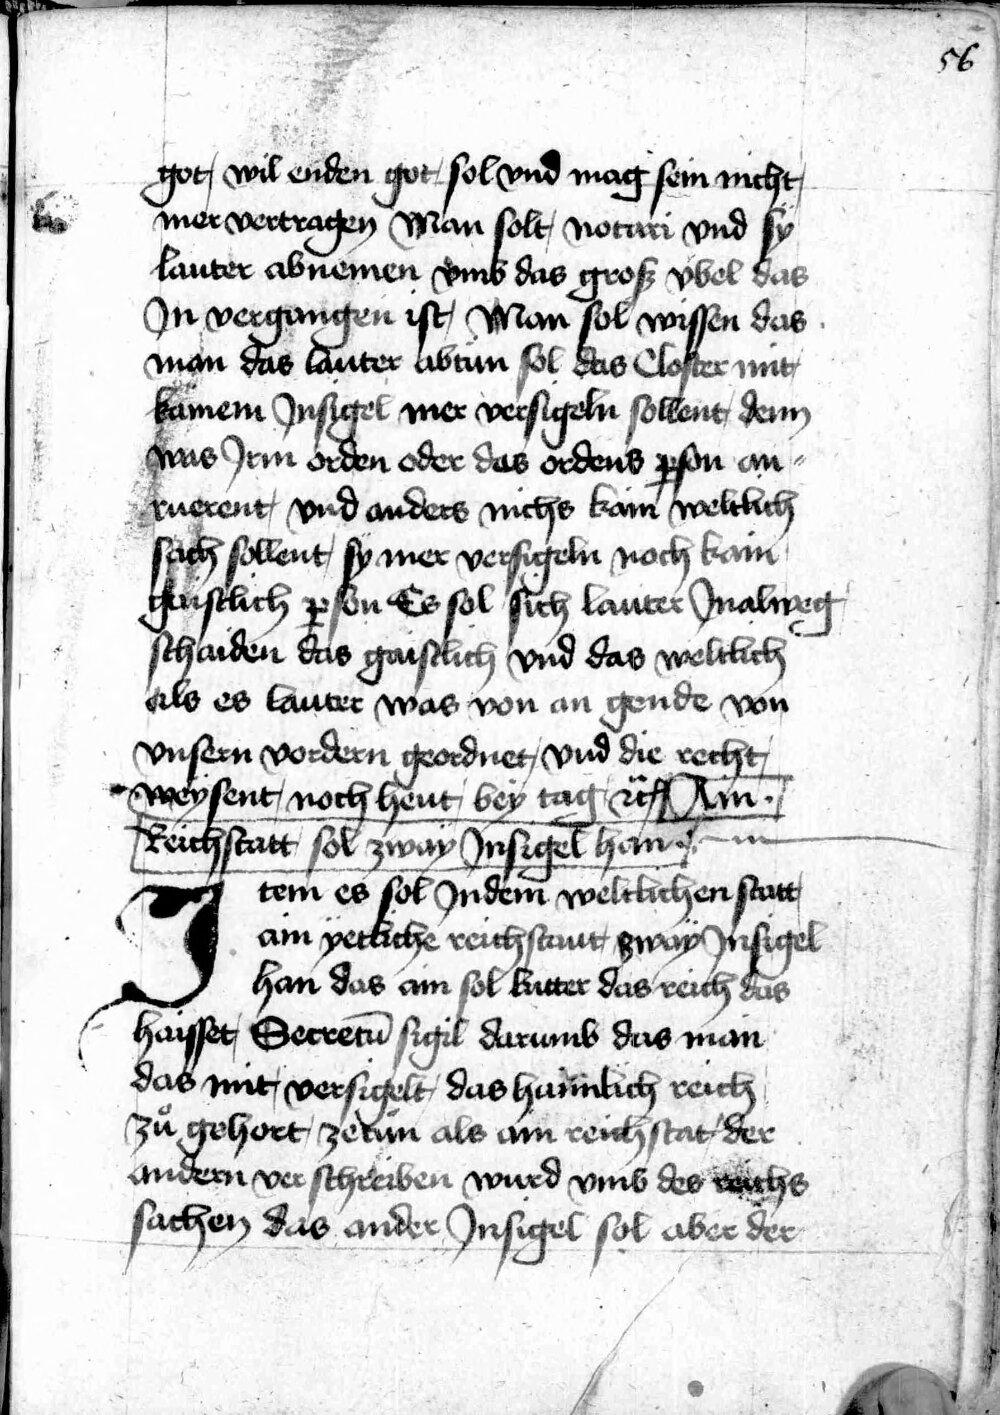 56
got wil enden got sol vnd mag sein nicht
mer vertragen Man solt notari vnd sy
lauter abnemen vmb das groß vbel das
Jn vergangen ist Man sol wissen das
man das lauter abtun sol das Closter mit
kainem Jnsigel mer versigeln sollent denn
was Jrm orden oder das ordens ꝑson an
ruerent vnd anders nichs kain weltlich
sach sollent sy mer versigeln noch kain
gaistlich ꝑson Es sol sich lauter Jnalweg
schaiden das gaistlich vnd das weltlich
als es lauter was von an gende von
vnsern vordern geordnet vnd die recht
weysent noch heut bey tag ꝛc Ain
Reichstatt sol zway Jnsigel han
Jtem es sol Jndem weltlichen statt
ain yetliche reichstaut zway Jnsigel
han das ain sol lutter das reich das
haisset Secretū sigil darumb das man
das mit versigelt das haimlich reich
zů gehort zetůn als ain reichstat der
andern ver schreiben wurd vmb des reichs
sachen das ander Jnsigel sol aber der